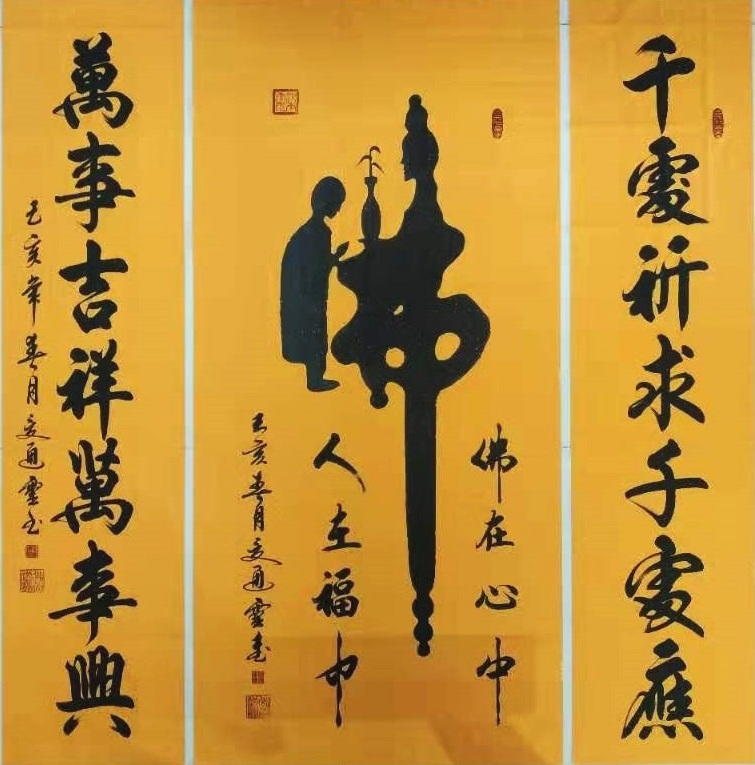 千處祈求千處應
佛
佛在心中
人在福中
己亥春月 通靈
萬事吉祥萬事興
己亥年春月 通靈书